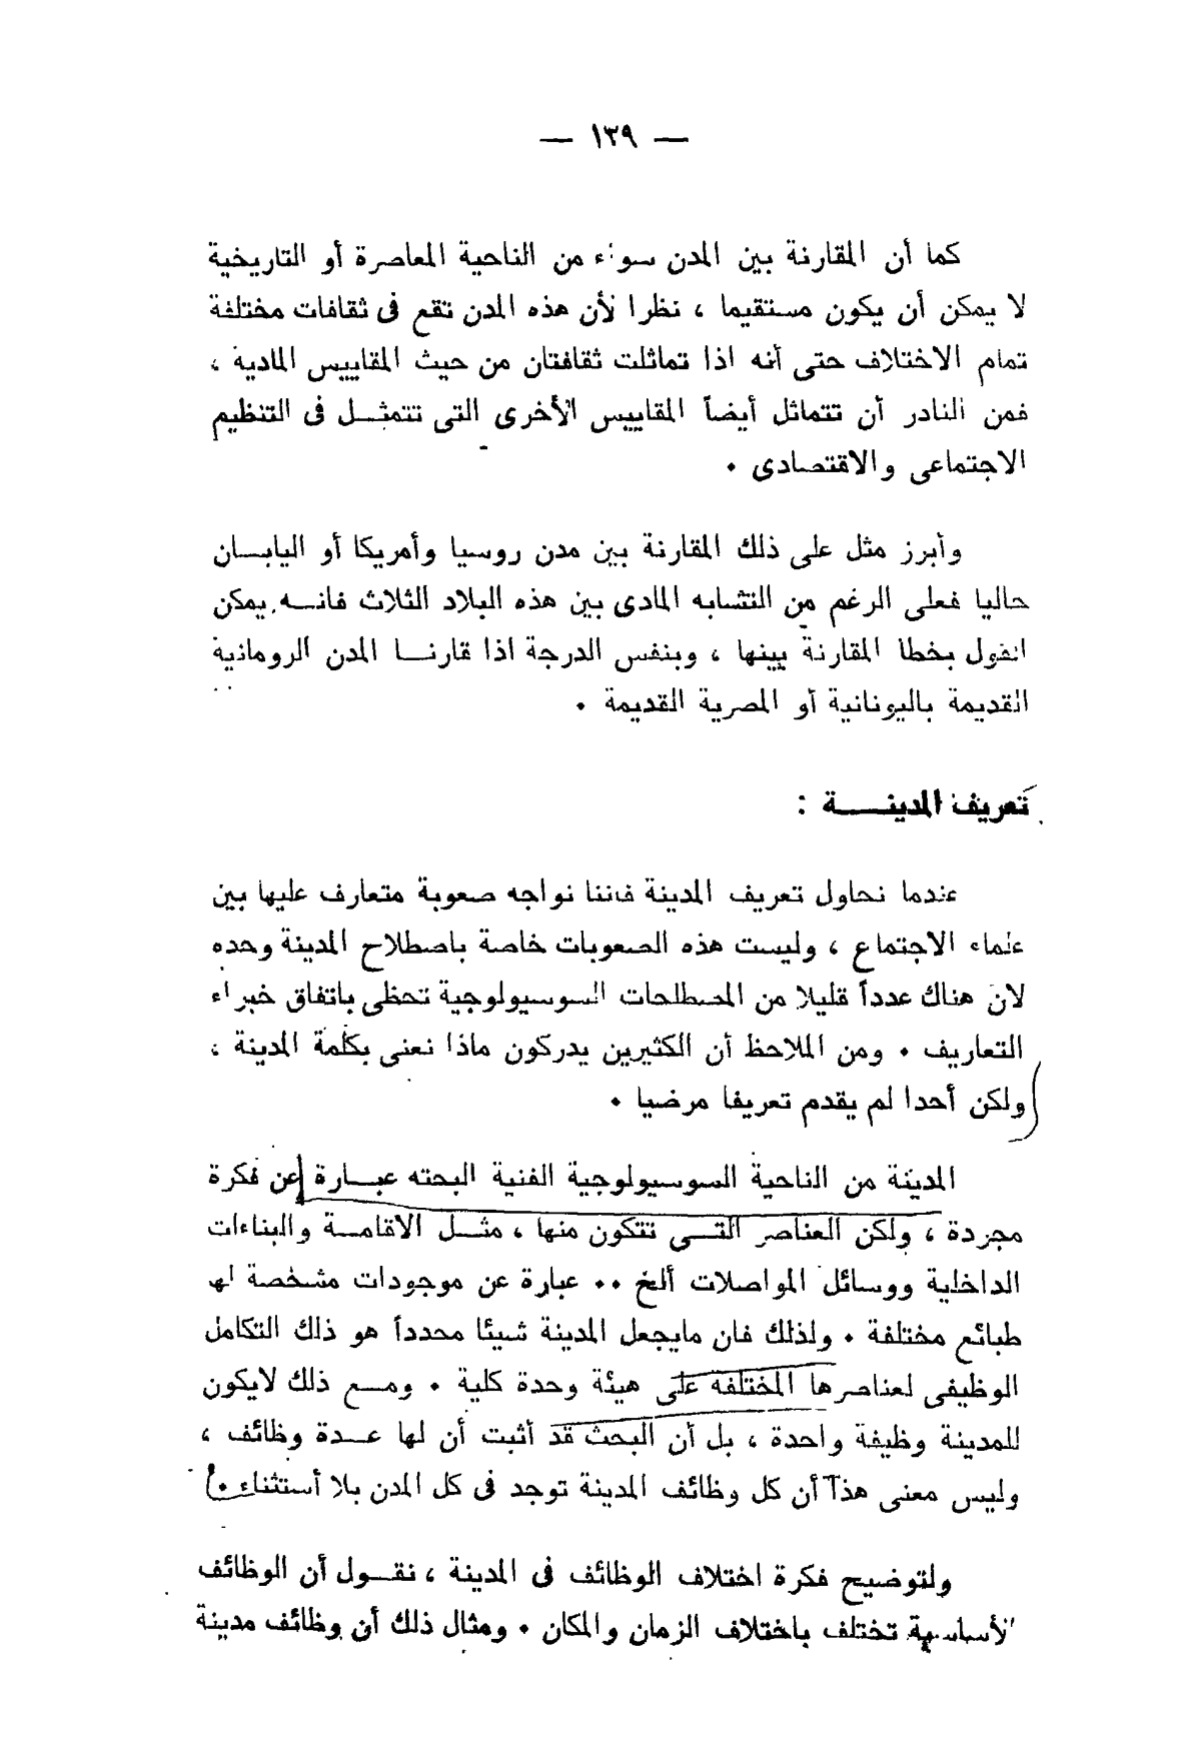 — ١٣٩ —
كما أن المقارنة بين المدن سواء من الناحية المعاصرة أو التاريخية
لا يمكن أن يكون مستقيما ، نظرا لأن هذه المدن تقع فى ثقافات مختلفة
تمام الاختلاف حتى أنه اذا تماثلت ثقافتان من حيث المقاييس المادية ،
فمن النادر أن تتماثل أيضاً المقاييس الأخرى التى تتمثـــل فى التنظيم
الاجتماعى والاقتصادى .
وأبرز مثل على ذلك المقارنة بين مدن روسيا وأمريكا أو اليابـــان
حاليا فعلى الرغم من التشابه المادى بين هذه البلاد الثلاث فانـــه يمكن
القول بخطا المقارنة بينها ، وبنفس الدرجة اذا قارنـــا المدن الرومانية
القديمة باليونانية أو المصرية القديمة .
تعريف المدينـــــة :
عندما نحاول تعريف المدينة فاننا نواجه صعوبة متعارف عليها بين
علماء الاجتماع ، وليست هذه الصعوبات خاصة باصطلاح المدينة وحده
لان هناك عدداً قليلا من المصطلحات السوسيولوجية تحظى باتفاق خبراء
التعاريف . ومن الملاحظ أن الكثيرين يدركون ماذا نعنى بكلمة المدينة ،
ولكن أحدا لم يقدم تعريفا مرضيا .
المدينة من الناحية السوسيولوجية الفنية البحته عبـــارة عن فكرة
مجردة ، ولكن العناصر التـــى تتكون منها ، مثـــل الاقامـــة والبناءات
الداخلية ووسائل المواصلات ألخ .. عبارة عن موجودات مشخصة لها
طبائع مختلفة . ولذلك فان مايجعل المدينة شيئا محدداً هو ذلك التكامل
الوظيفى لعناصرها المختلفة على هيئة وحدة كلية . ومـــع ذلك لايكون
للمدينة وظيفة واحدة ، بل أن البحث قد أثبت أن لها عـــدة وظائف ،
وليس معنى هذا أن كل وظائف المدينة توجد فى كل المدن بلا أستثناء .
ولتوضيح فكرة اختلاف الوظائف فى المدينة ، نقـــول أن الوظائف
الأساسية تختلف باختلاف الزمان والمكان . ومثال ذلك أن وظائف مدينة